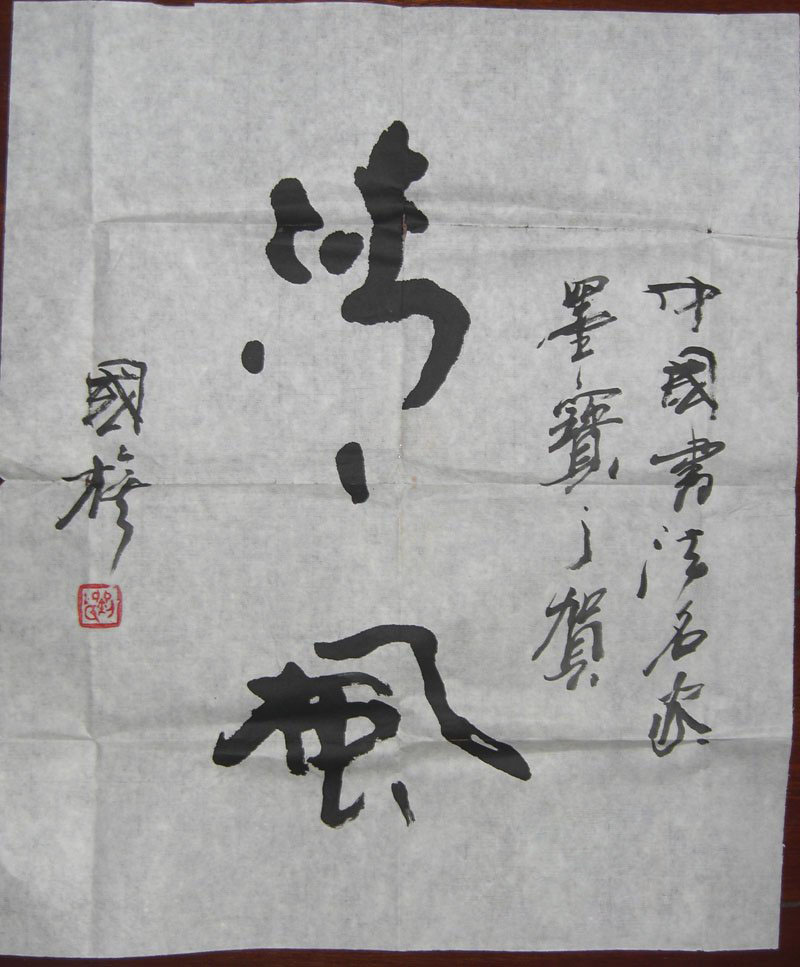 中國書法名家
墨寶之賀
清風
國